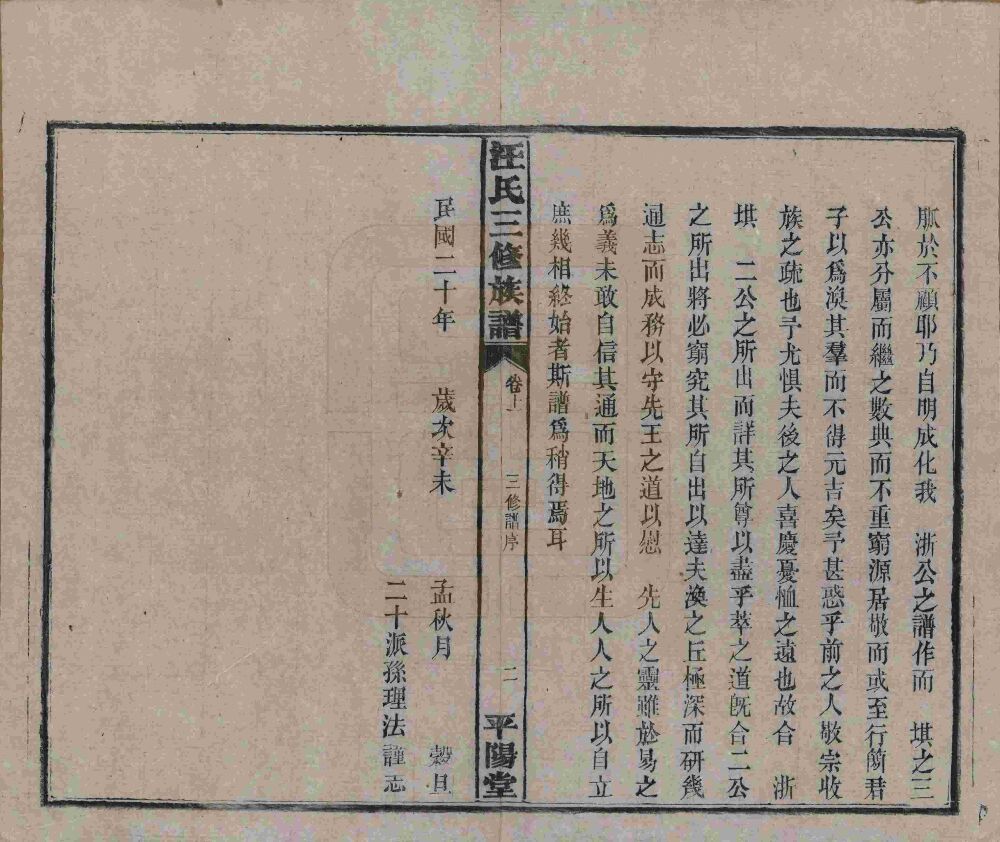 脈於不顧耶乃自明成化我　浙公之譜作而　堪之三
公亦分屬而繼之數典而不重窮源居敬而或至行簡君
子以爲渙其羣而不得元吉矣予甚惑乎前之人敬宗收
族之疏也予尤惧夫後之人喜慶憂恤之遠也故合　浙
堪　二公之所出而詳其所尊以盡乎萃之道旣合二公
之所出將必窮究其所自出以達夫渙之丘極深而硏幾
通志而成務以守先王之道以慰　先人之靈雖於易之
爲義未敢自信其通而天地之所以生人人之所以自立
庶幾相終始者斯譜爲稍得焉耳
汪氏三修族譜　卷上　三修譜序　二　平陽堂
民國二十年　歲次辛未　孟秋月　穀旦
二十派孫理法　謹志